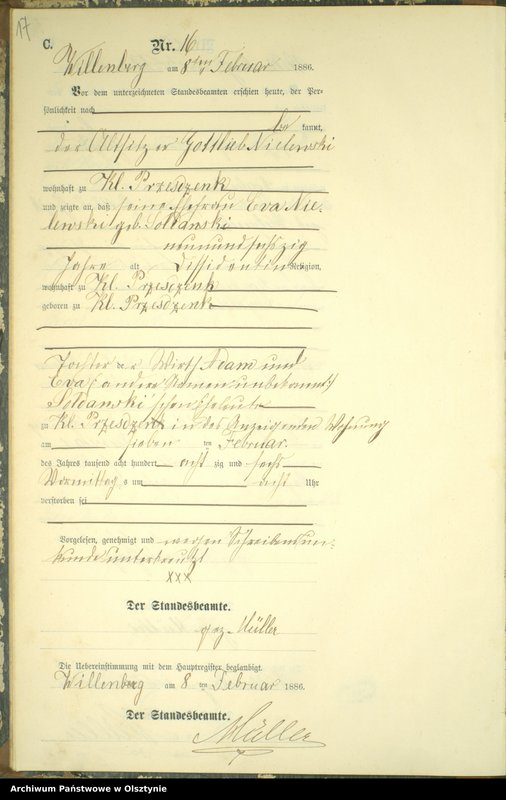 17
C.
Nr. 16
Willenberg am 8ten Februar 1886.
Vor dem unterzeichneten Standesbeamten erschien heute, der Per-
sönlichkeit nach
be kannt,
der Altsitzer Gottlieb Nielewski
wohnhaft zu Kl. Przesdzenk
und zeigte an, daß seine Ehefrau Eva Nie-
lewski geb. Soldanski
neunundsechszig
Jahre alt, Dissidentin Religion,
wohnhaft zu Kl. Przesdzenk
geboren zu Kl. Przesdzenk
Tochter der Wirth Adam und
Eva (andere Namen unbekannt)
Soldanski'schen Eheleute
zu Kl. Przesdzenk in des Anzeigenden Wohnung
am sieben ten Februar
des Jahres tausend acht hundert acht zig und sechs
Vormittags um acht Uhr
verstorben sei
Vorgelesen, genehmigt und wegen Schreibensun-
kunde unterkreuzt
XXX
Der Standesbeamte.
gez. Müller
Die Uebereinstimmung mit dem Hauptregister beglaubigt.
Willenberg am 8 ten Februar 1886.
Der Standesbeamte.
Müller
Archiwum Państwowe w Olsztynie